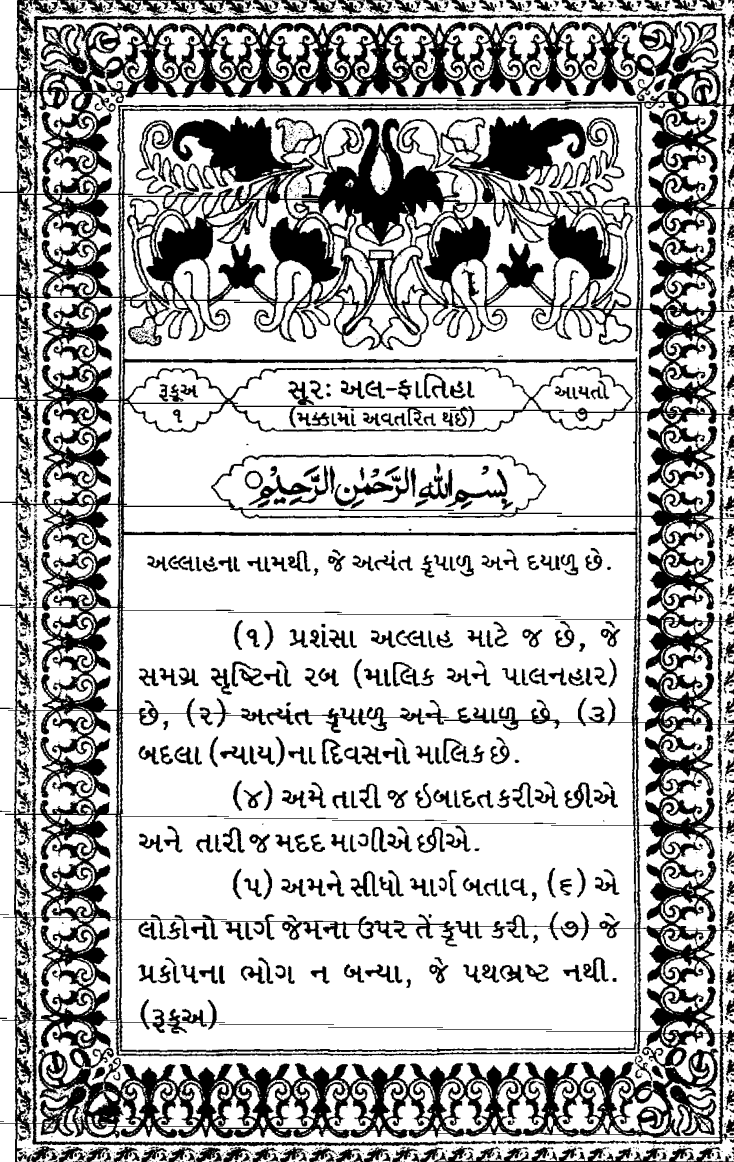 રૂકૂઅ
૧
સૂર: અલ-ફાતિહા
(મક્કામાં અવતરિત થઈ)
આયતો
૭
بِسْمِ اللهِ الرَّحْمٰنِ الرَّحِيْمِ
અલ્લાહના નામથી, જે અત્યંત કૃપાળુ અને દયાળુ છે.
(૧) પ્રશંસા અલ્લાહ માટે જ છે, જે
સમગ્ર સૃષ્ટિનો રબ (માલિક અને પાલનહાર)
છે, (૨) અત્યંત કૃપાળુ અને દયાળુ છે, (૩)
બદલા (ન્યાય)ના દિવસનો માલિક છે.
(૪) અમે તારી જ ઇબાદત કરીએ છીએ
અને તારી જ મદદ માગીએ છીએ.
(૫) અમને સીધો માર્ગ બતાવ, (૬) એ
લોકોનો માર્ગ જેમના ઉપર તેં કૃપા કરી, (૭) જે
પ્રકોપના ભોગ ન બન્યા, જે પથભ્રષ્ટ નથી.
(રૂકૂઅ)